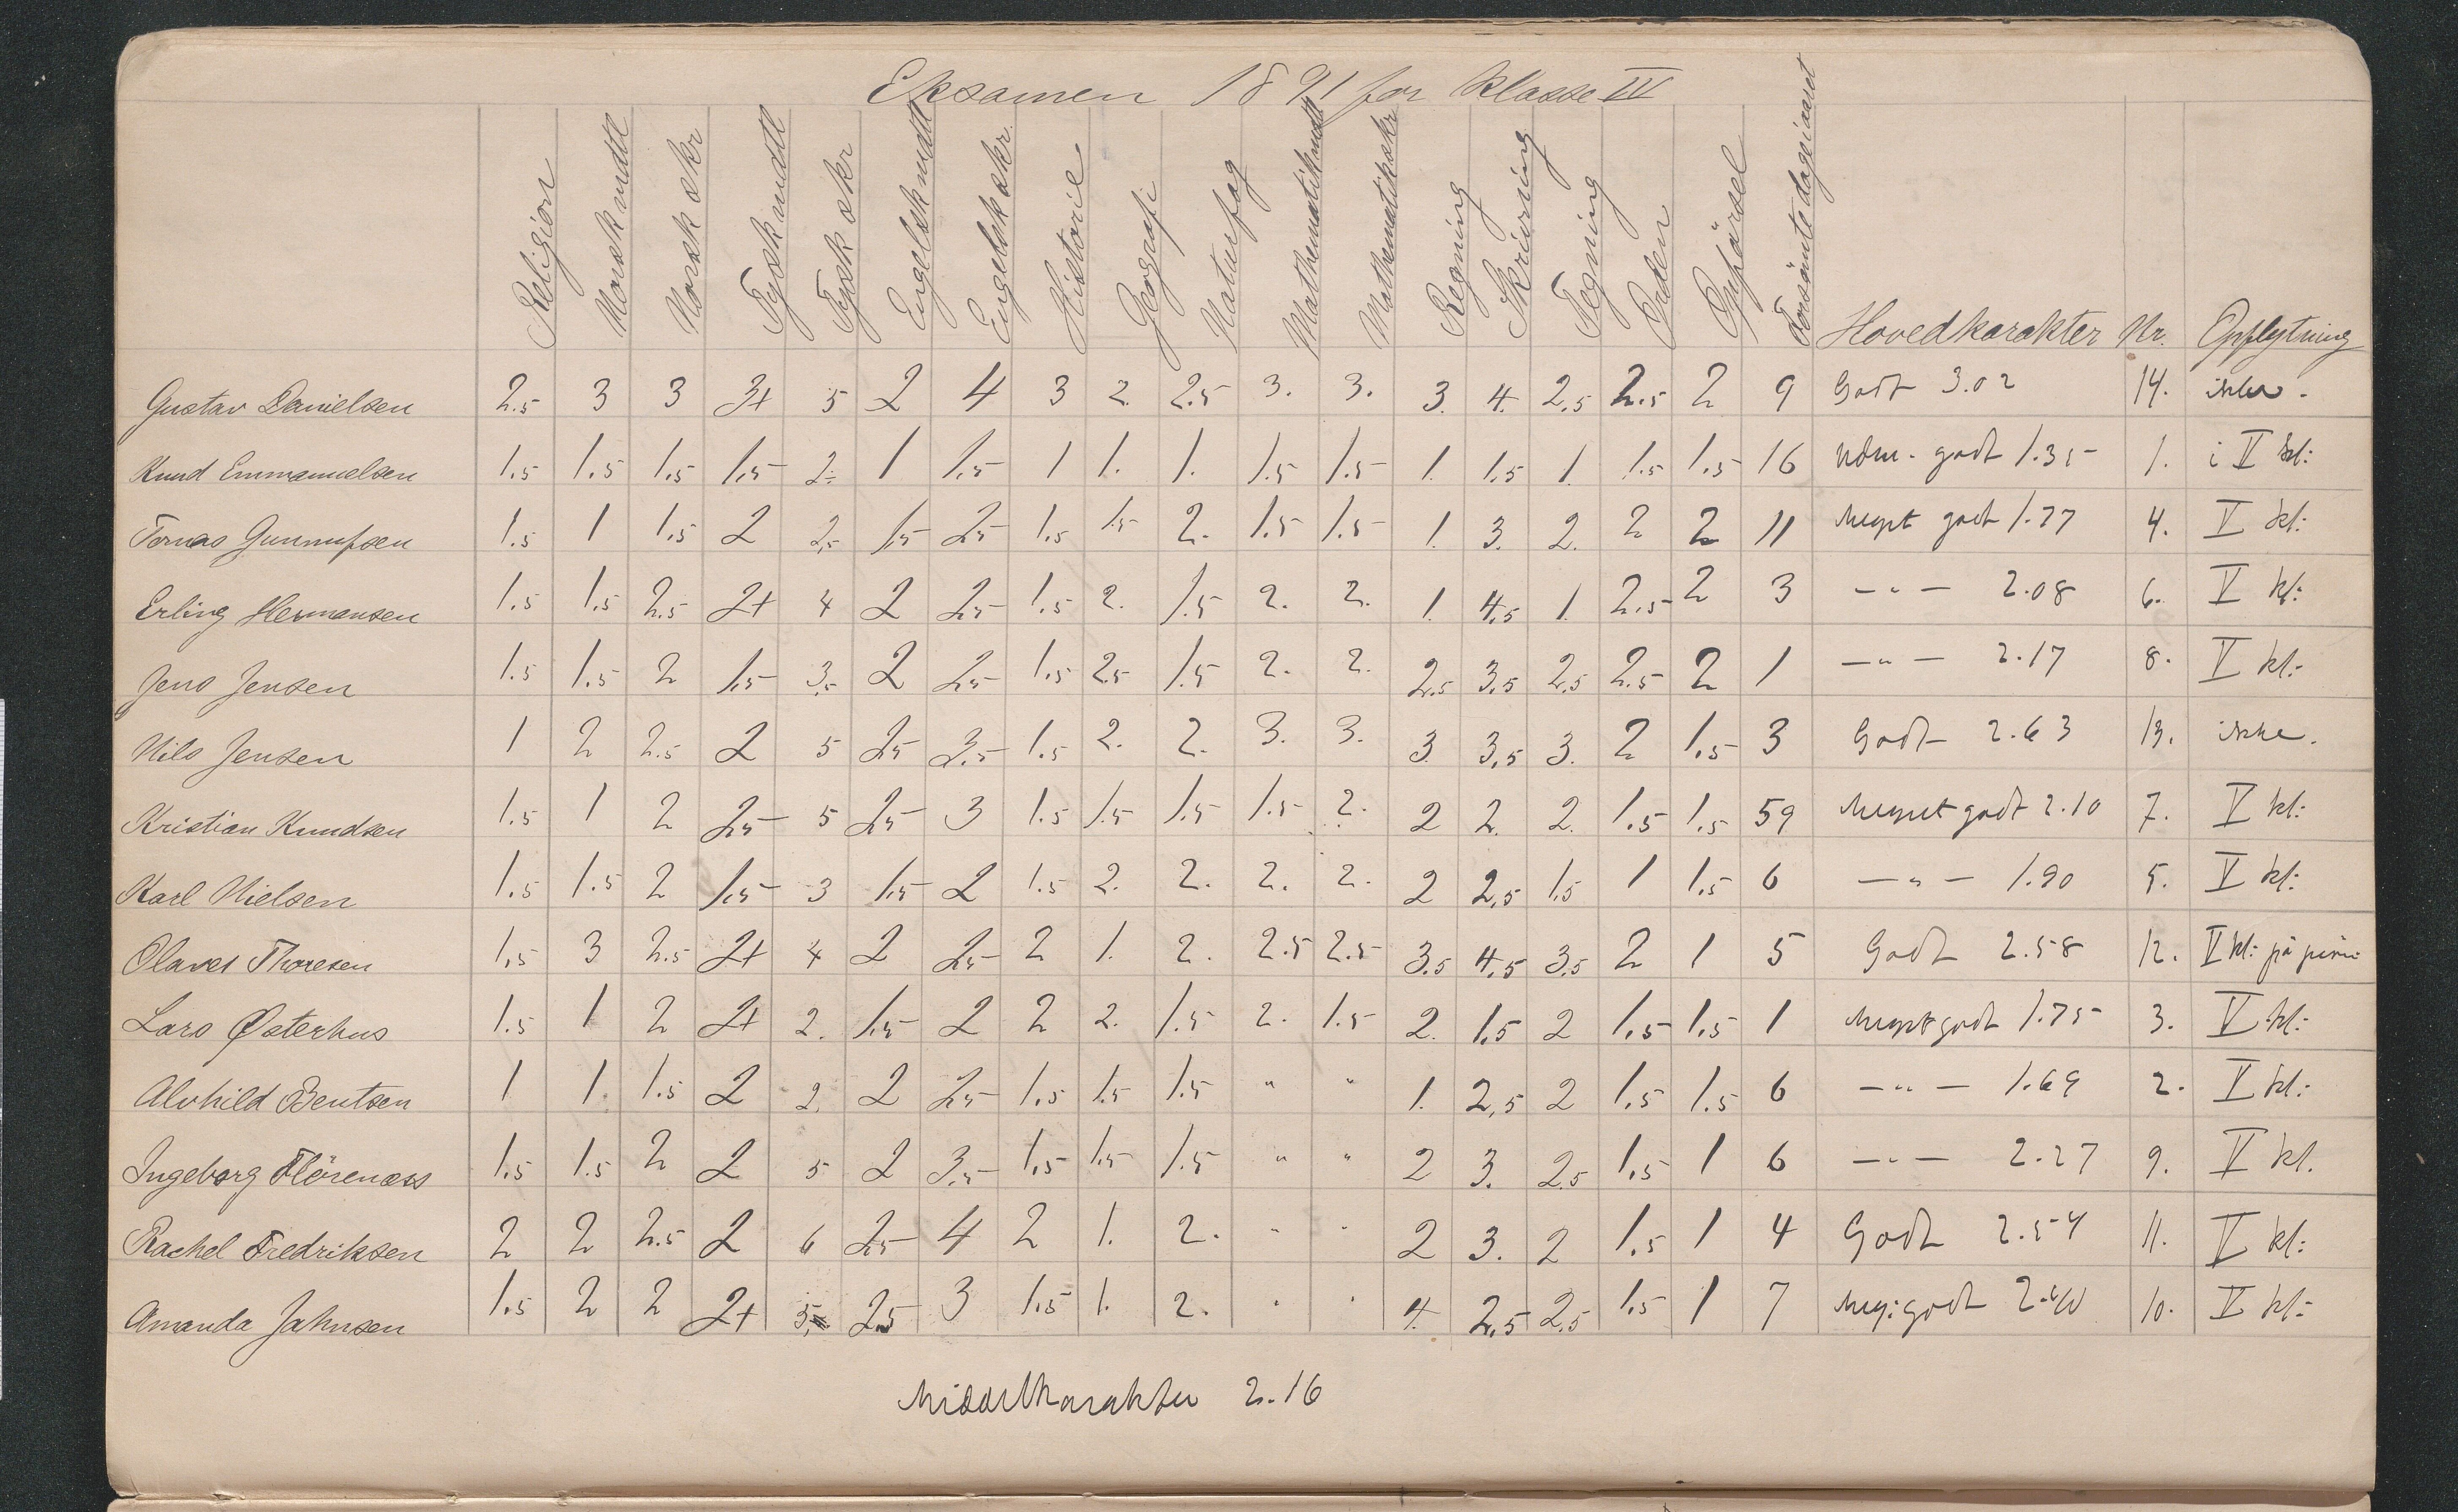 Eksamen 1891 for klasse IV
Religion Norsk mdtl Norsk skr Tysk mdtl Tysk skr Engelsk mdtl Engelsk skr. Historie Geografi Naturfag Mathematik mdtl Mathematik skr Regning Skrivning Tegning Orden Opførsel Forsømte dage i aaret Hovedkarakter Nr. Opflytning
Gustav Danielsen 2.5 3 3 3+ 5 2 4 3 2. 2.5 3. 3. 3. 4. 2.5 2.5 2 9 Godt 3.02 14. ikke.
Knud Emmanuelsen 1.5 1.5 1.5 1.5 2÷ 1 1.5 1 1. 1. 1.5 1.5 1. 1.5 1. 1.5 1.5 16 Udm. godt 1.35 1. i V kl:
Tomas Gunnufsen 1.5 1 1.5 2 2.5 1.5 2.5 1.5 1.5 2. 1.5 1.5 1. 3. 2. 2 2 11 Meget godt 1.77 4. V kl:
Erling Hermansen 1.5 1.5 2.5 2+ 4 2 2.5 1.5 2. 1.5 2. 2. 1. 4.5 1. 2.5 2 3 — " — 2.08 6. V kl:
Jens Jensen 1.5 1.5 2 1.5 3.5 2 2.5 1.5 2.5 1.5 2. 2. 2.5 3.5 2.5 2.5 2 1 — " — 2.17 8. V kl:
Nils Jensen 1 2 2.5 2 5 2.5 3.5 1.5 2. 2. 3. 3. 3. 3.5 3. 2 1.5 3 Godt 2.63 13. ikke.
Kristian Knudsen 1.5 1 2 2.5 5 2.5 3 1.5 1.5 1.5 1.5 2. 2 2. 2. 1.5 1.5 59 Meget godt 2.10 7. V kl:
Karl Nielsen 1.5 1.5 2 1.5 3 1.5 2 1.5 2. 2. 2. 2. 2 2.5 1.5 1 1.5 6 — " — 1.90 5. V kl:
Olaves Thoresen 1.5 3 2.5 2+ 4 2 2.5 2 1. 2. 2.5 2.5 3.5 4.5 3.5 2 1 5 Godt 2.58 12. V kl: på
Lars Østerhus 1.5 1 2 2+ 2. 1.5 2 2 2. 1.5 2. 1.5 2. 1.5 2 1.5 1.5 1 Meget godt 1.75 3. V kl:
Alvhild Bentsen 1 1 1.5 2 2. 2 2.5 1.5 1.5 1.5 " " 1. 2.5 2 1.5 1.5 6 — " — 1.69 2. V kl:
Ingeborg Flörenæss 1.5 1.5 2 2 5 2 3.5 1.5 1.5 1.5 " " 2 3. 2.5 1.5 1 6 — " — 2.27 9. V kl.
Rachel Fredriksen 2 2 2.5 2 6 2.5 4 2 1. 2. " " 2 3. 2 1.5 1 4 Godt 2.54 11. V kl:
Amanda Jahnsen 1.5 2 2 2+ 5 2.5 3 1.5 1. 2. " " 4. 2.5 2.5 1.5 1 7 Meg: godt 2.40 10. V kl:
Middelkarakter 2.16